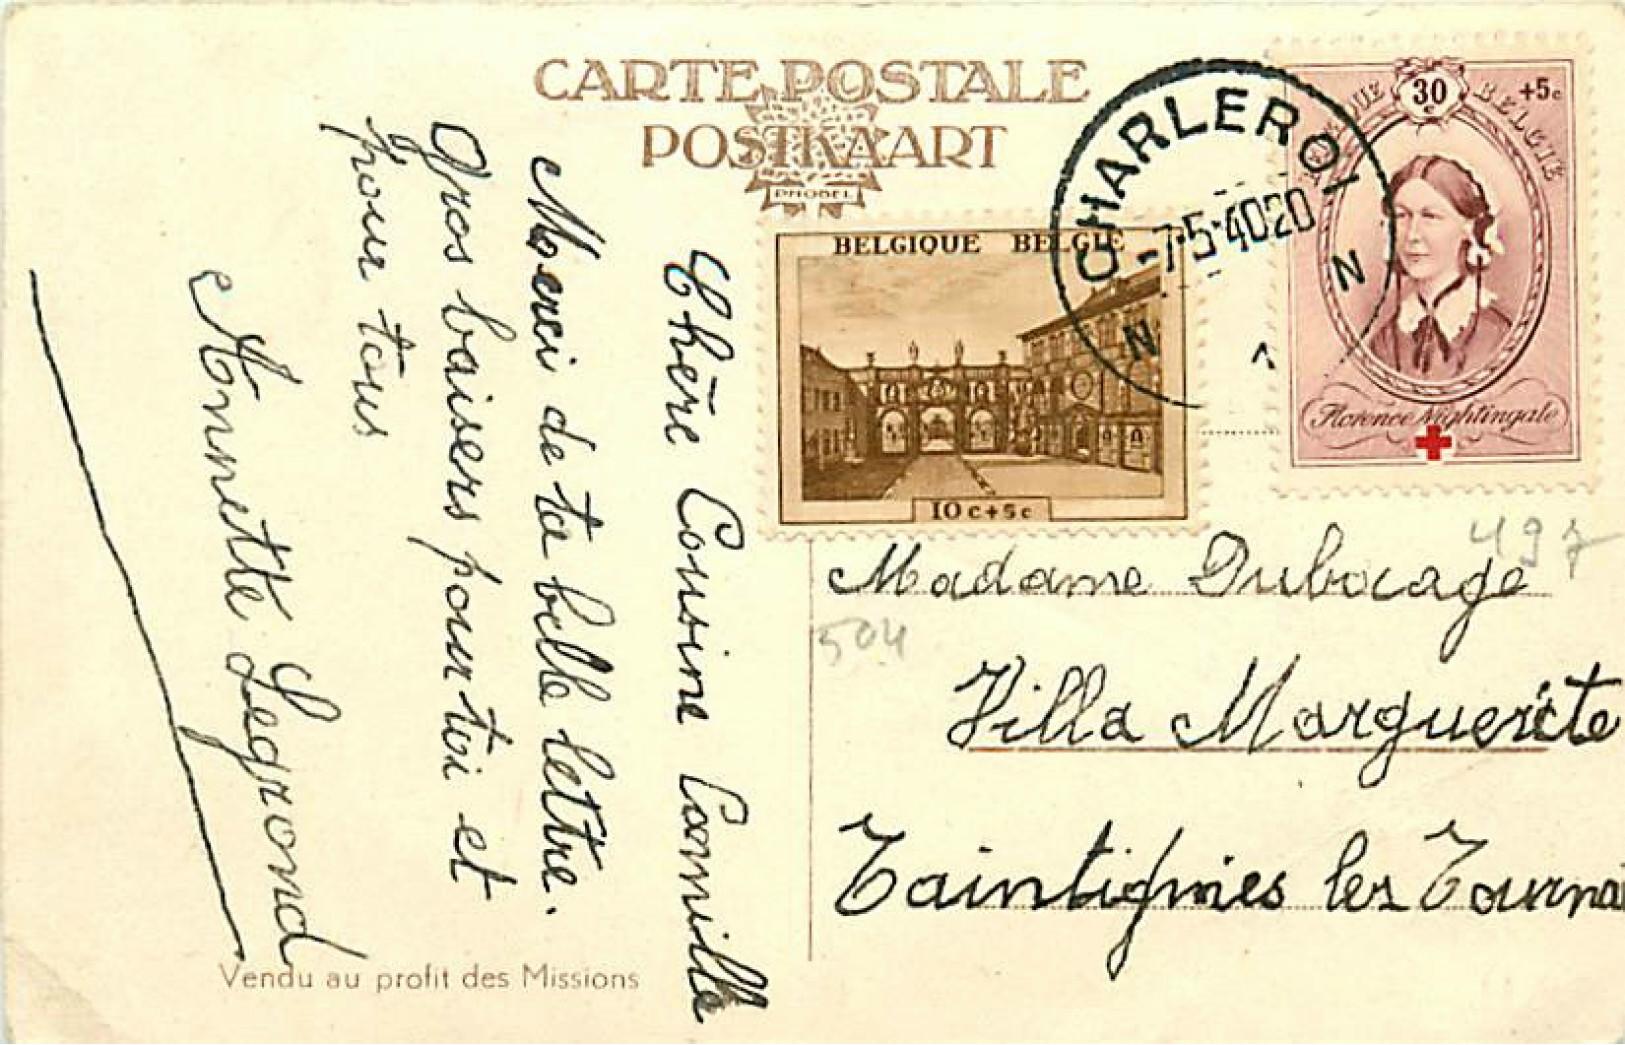 CARTE POSTALE
POSTKAART
PHOBEL
BELGIQUE BELGIE
10c+5c
CHARLEROI
-7-5-4020
N N
1
30
+5c
BELGIE
Florence Nightingale
Chère Cousine Camille
Merci de ta belle lettre.
Gros baisers pour toi et
pour tous
Annette Legrand
Madame Dubocage
497
504
Villa Marguerite
Taintignies lez Tournai
Vendu au profit des Missions